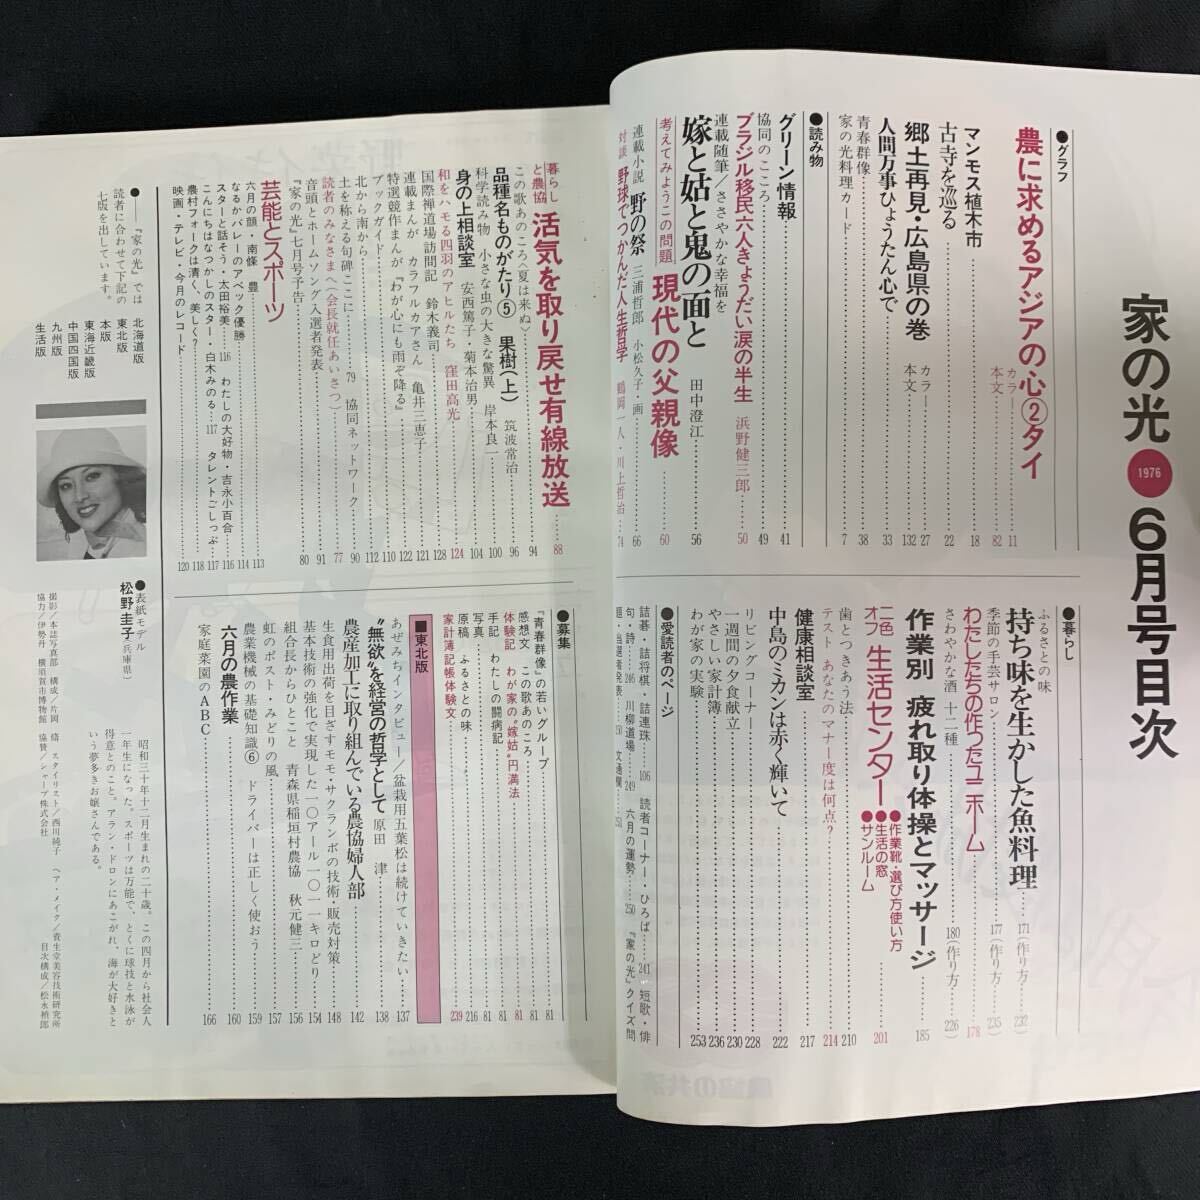 家の光 1976 6月号目次
●グラフ
農に求めるアジアの心②タイ
カラー 11
本文 82
マンモス植木市 18
古寺を巡る 22
郷土再見・広島県の巻
カラー 27
本文 132
人間万事ひょうたん心で 33
青春群像 38
家の光料理カード 7
●読み物
グリーン情報 41
協同のこころ 49
ブラジル移民六人きょうだい涙の半生 浜野健三郎 50
連載随筆/ささやかな幸福を
嫁と姑と鬼の面と 田中澄江 56
考えてみようこの問題 現代の父親像 60
連載小説 野の祭 三浦哲郎 小松久子・画 66
対談 野球でつかんだ人生哲学 鶴岡一人・川上哲治 74
暮らしと農協 活気を取り戻せ有線放送 88
この歌あのころ〈夏は来ぬ〉 94
品種名ものがたり⑤ 果樹(上) 筑波常治 96
科学読み物 小さな虫の大きな驚異 岸本良一 100
身の上相談室 安西篤子・菊本治男 104
和をハモる四羽のアヒルたち 窪田高光 124
国際禅道場訪問記 鈴木義司 128
連載まんが カラフルカアさん 亀井三恵子 121
特選競作まんが『わが心にも雨ぞ降る』 122
ブックガイド 110
北から南から 112
土を称える句碑ここに 79 協同ネットワーク 90
読者のみなさまへ〈会長就任あいさつ〉 77
音頭とホームソング入選者発表 91
『家の光』七月号予告 80
芸能とスポーツ
六月の顔・南條 豊 113
なるかバレーのアベック優勝 114
スターと話そう・太田裕美 116 わたしの大好物・吉永小百合 116
こんにちはなつかしのスター・白木みのる 117 タレントごしっぷ 117
農村フォークは清く、美しく? 118
映画・テレビ・今月のレコード 120
●暮らし
ふるさとの味
持ち味を生かした魚料理 171(作り方)232
季節の手芸サロン 177(作り方)235
わたしたちの作ったユニホーム 178
さわやかな酒 十二種 180(作り方)226
作業別 疲れ取り体操とマッサージ 185
二色オフ 生活センター ●作業靴・選び方使い方
●生活の窓
●サンルーム 201
歯とつきあう法 210
テスト あなたのマナー度は何点? 214
健康相談室 217
中島のミカンは赤く輝いて 222
リビングコーナー 228
一週間の夕食献立 230
やさしい家計簿 236
わが家の実験 253
●愛読者のページ
詰碁・詰将棋・詰連珠 106 読者コーナー・ひろば 241 短歌・俳
句・詩 246 川柳道場 249 六月の運勢 250 『家の光』クイズ問
●募集
『青春群像』の若いグループ 81
感想文 この歌あのころ 81
体験記 わが家の“嫁姑”円満法 81
手記 わたしの闘病記 81
写真 81
原稿 ふるさとの味 216
家計簿記帳体験文 239
■東北版
あぜみちインタビュー/盆栽用五葉松は続けていきたい 137
“無欲”を経営の哲学として 原田 津 138
農産加工に取り組んでいる農協婦人部 142
生食用出荷を目ざすモモ・サクランボの技術・販売対策 148
基本技術の強化で実現した一〇アール一〇一一キロどり 154
組合長からひとこと 青森県稲垣村農協 秋元健三 156
虹のポスト・みどりの風 157
農業機械の基礎知識⑥ ドライバーは正しく使おう 159
六月の農作業 160
家庭菜園のABC 166
●――『家の光』では
読者に合わせて下記の
七版を出しています。
北海道版
東北版
本版
東海近畿版
中国四国版
九州版
生活版
●表紙モデル
松野圭子(兵庫県)
昭和三十年十二月生まれの二十歳。この四月から社会人
一年生になった。スポーツは万能で、とくに球技と水泳が
得意とのこと。アラン・ドロンにあこがれ、海が大好きと
いう夢多きお嬢さんである。
撮影/本誌写真部 構成/片岡 脩 スタイリスト/西川純子 ヘア・メイク/資生堂美容技術研究所
協力/伊勢丹 横須賀市博物館 協賛/シャープ株式会社 目次構成/松永禎郎